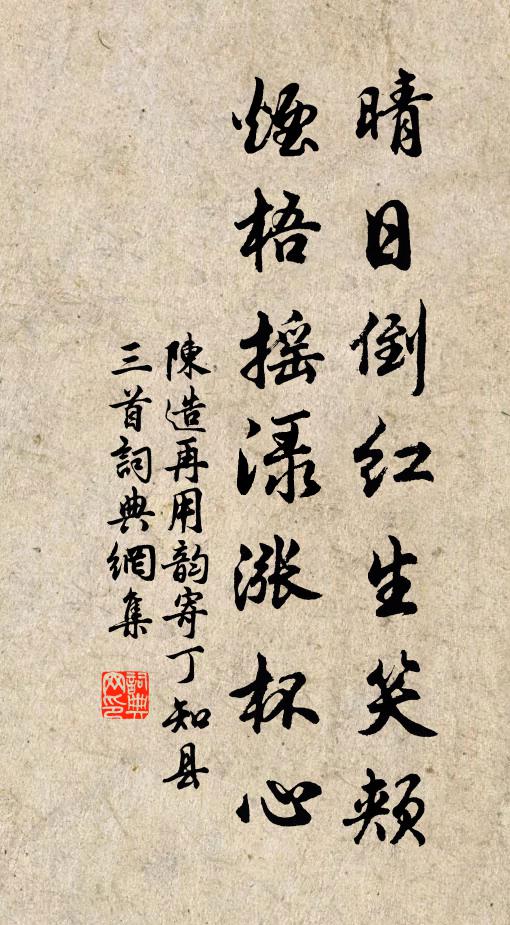 晴日倒红生笑頰
煙梧摇渌漲杯心
陳造再用韵寄丁知县
三首詞典網集
詞典网印